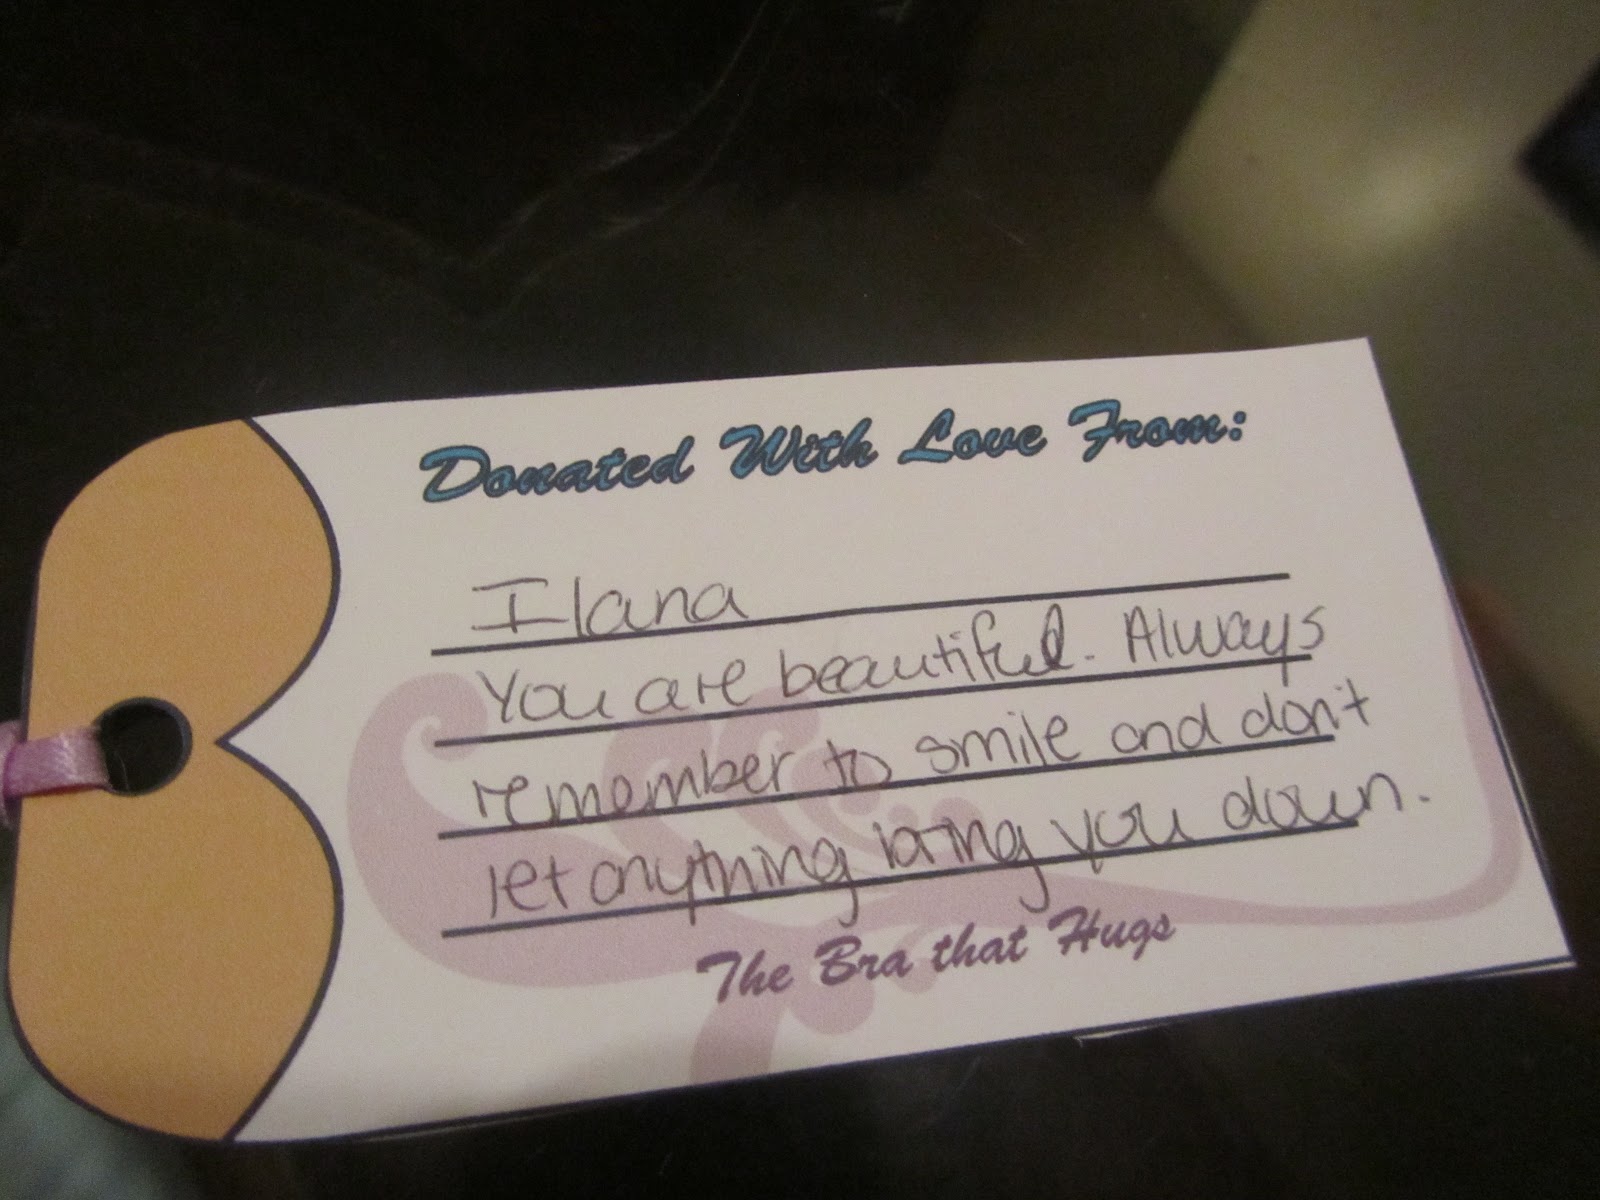 Donated With Love From:
Ilana
You are beautiful. Always
remember to smile and don't
let anything bring you down.
The Bra that Hugs